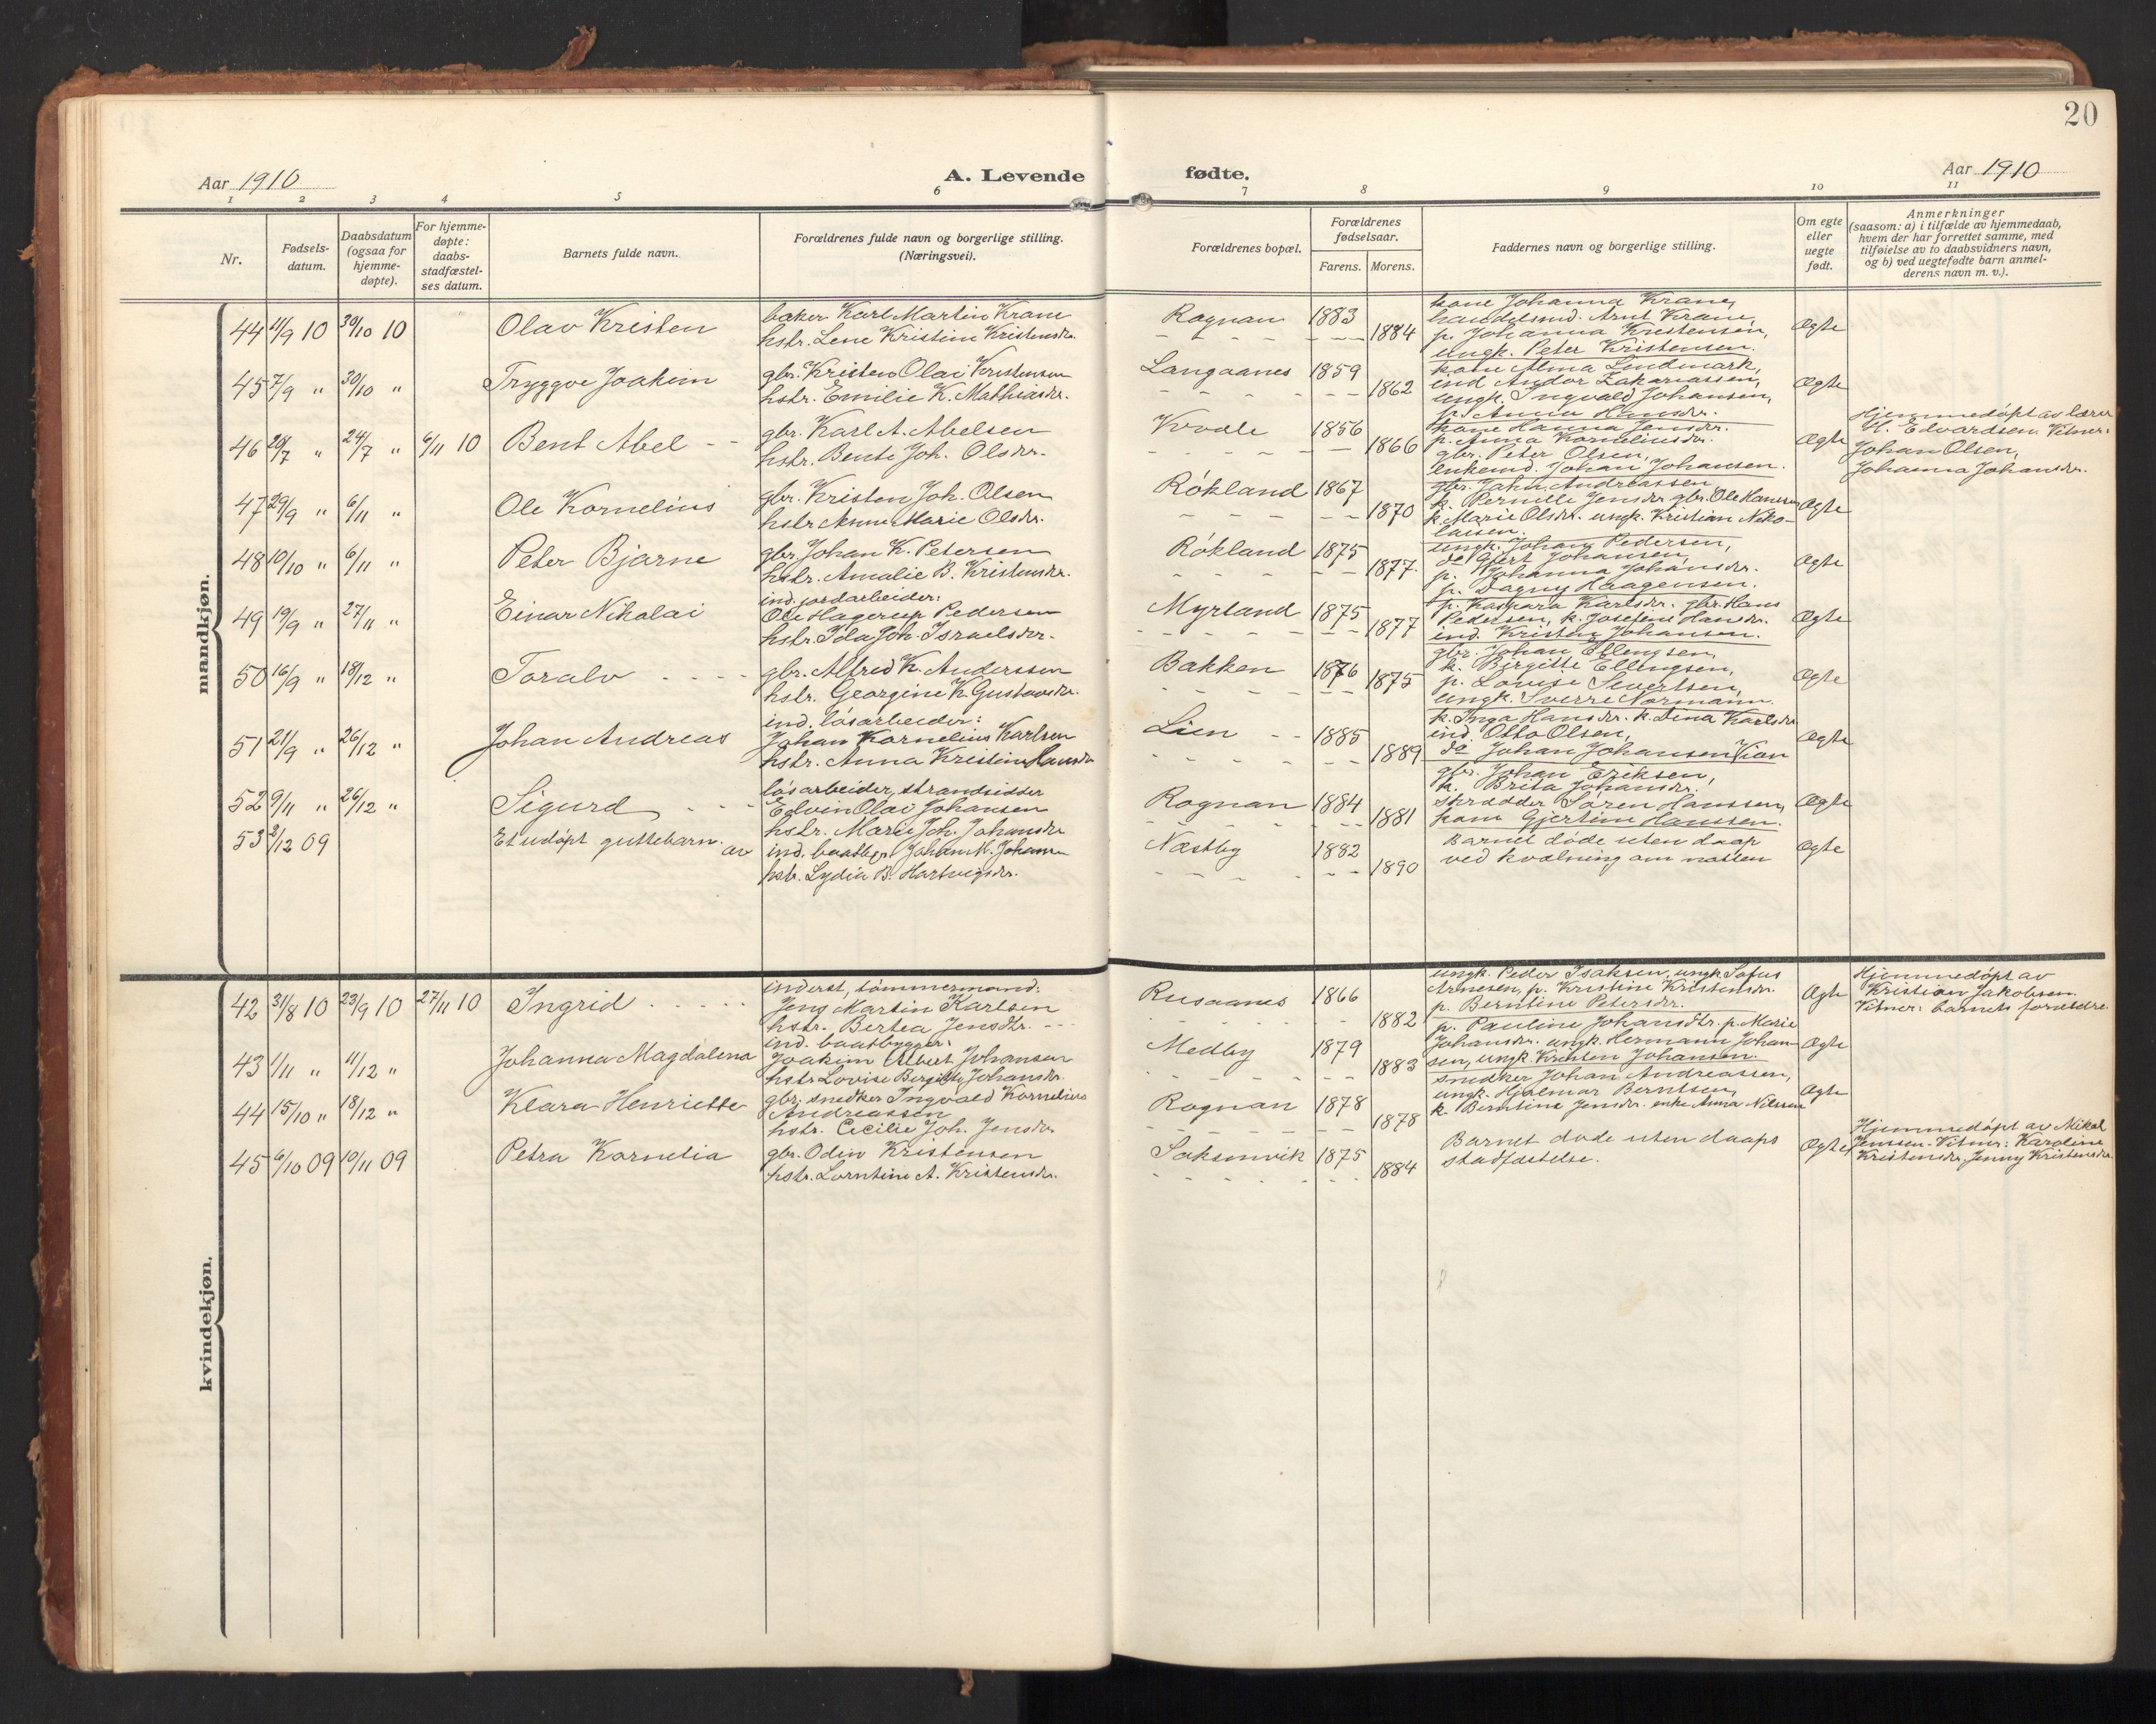 20
Aar 1910
A. Levende
fødte.
Aar 1910
1 2 3 4 5 6 7 8 9 10 11
Nr.
Fødsels-
datum.
Daabsdatum
(ogsaa for
hjemme-
døpte).
For hjemme-
døpte:
daabs-
stadfæstel-
ses datum.
Barnets fulde navn.
Forældrenes fulde navn og borgerlige stilling.
(Næringsvei).
Forældrenes bopæl.
Forældrenes
fødselsaar.
Farens. Morens.
Faddernes navn og borgerlige stilling.
Om egte
eller
uegte
født.
Anmerkninger
(saasom: a) i tilfælde av hjemmedaab,
hvem der har forrettet samme, med
tilføielse av to daabsvidners navn,
og b) ved uegtefødte barn anmel-
derens navn m. v.).
mandkjøn.
44 11/9 10 30/10 10 Olav Kristen
baker Karl Martin Krane
hstr. Lene Kristine Kristensdr.
Rognan 1883 1884
kone Johanna Krane,
handelsmd. Arnt Krane,
p. Johanna Kristensen,
ungk. Peter Kristensen.
Ægte
45 7/9 " 30/10 " Tryggve Joakim
gbr. Kristen Olai Kristensen
hstr. Emilie K. Mathiasdr.
Langaanes 1859 1862
kone Alma Lindmark,
ind Andor Zakariassen,
ungk. Ingvald Johansen,
p. Anna Hansdr.
Ægte
46 20/7 " 24/7 " 6/11 10 Bent Abel
gbr. Karl A. Abelsen
hstr. Bente Joh. Olsdr.
Kvale 1856 1866
kone Hanna Jensdr.
p. Anna Korneliusdr.
gbr. Peter Olsen,
enkemd. Johan Johansen.
Ægte
Hjemmedøpt av lærer
H. Edvardsen. Vitner:
Johan Olsen,
Johanna Johansdr.
47 29/9 " 6/11 " Ole Kornelius
gbr. Kristen Joh. Olsen
hstr Anne Marie Olsdr.
Røkland 1867 1870
gbr. Jahn Andreassen,
k. Pernille Jensdr gbr. Ole Hansen
k. Marie Olsdr. ungk. Kristian Niko-
laisen.
Ægte
48 10/10 " 6/11 " Peter Bjarne
gbr. Johan K. Petersen
hstr. Amalie B. Kristensdr.
Røkland 1875 1877
ungk. Johan Pedersen,
do Gjert Johansen,
p. Johanna Johansdr.
p. Dagny Haagensen.
Ægte
49 19/9 " 27/11 " Einar Nikolai
ind. jordarbeider:
Ole Hagerup Pedersen
hstr. Ida Joh. Israelsdr.
Myrland 1875 1877
p. Kaspara Karlsdr. gbr. Hans
Pedersen, k. Josefine Hansdr.
ind. Kristen Johansen.
Ægte
50 16/9 " 18/12 " Toralv
gbr. Alfred K. Anderssen
hstr. Georgine K. Gustavsdr.
Bakken 1876 1875
gbr. Johan Ellengsen,
k. Birgitte Ellingsen,
p. Lovise Sivertsen,
ungk. Sverre Normann.
Ægte
51 21/9 " 26/12 " Johan Andreas
ind. løsarbeider:
Johan Kornelius Karlsen
hstr. Anna Kristine Hansdr
Lien 1885 1889
k. Inga Hansdr. k. Dina Karlsdr
ind. Otto Olsen,
do Johan Johansen Vian
Ægte
52 9/11 " 26/12 " Sigurd
løsarbeider, strandsidder
Edvin Olai Johansen
hstr. Marie Joh. Johansdr
Rognan 1884 1881
gbr. Johan Eriksen,
k. Brita Johansdr.
skrædder Søren Hanssen,
kone Gjertine Hanssen.
Ægte
53 2/12 09 Et udøpt guttebarn av
ind. baatbygr. Johan M. Johansen
hstr. Lydia B. Hartvigsdr.
Næstby 1882 1890
Barnet døde uten daap
ved kvælning om natten
Ægte
kvindekjøn.
42 31/8 10 23/9 10 27/11 10 Ingrid
inderst, tømmermand:
Jens Martin Karlsen
hstr. Bertea Jensdtr.
Rusaanes 1866 1882
ungk. Peder Isaksen, ungk. Sofus
Arnesen, p. Kristine Kristensdr.
p. Berntine Petersdr.
Ægte
Hjemmedøpt av
Kristian Jakobsen.
Vitner: barnets forældre.
43 1/11 " 4/12 " Johanna Magdalena
ind. baatbygger:
Joakim Albert Johansen
hstr Lovise Bergitte Johansdr.
Medby 1879 1883
p. Pauline Johansdtr. p. Marie
Johansdr. ungk. Hermann Johan-
sen, ungk. Kristen Johansen.
Ægte
44 15/10 " 18/12 " Klara Henriette
gbr. snedker Ingvald Kornelius
Andreassen
hstr. Cecilie Joh. Jensdr
Rognan 1878 1878
snedker Johan Andreassen,
ungk. Hjalmar Berntsen,
k. Berntine Jensdr. enke Anna Nilssen
Ægte
45 6/10 09 10/11 09 Petra Kornelia
gbr. Odin Kristensen
hstr. Lorntine A. Kristensdr.
Saksenvik 1875 1884
Barnet døde uten daaps
stadfæstelse.
Ægte
Hjemmedøpt av Nikol
Jenssen. Vitner: Karoline
Kristensdr. Jenny Kristensdr.